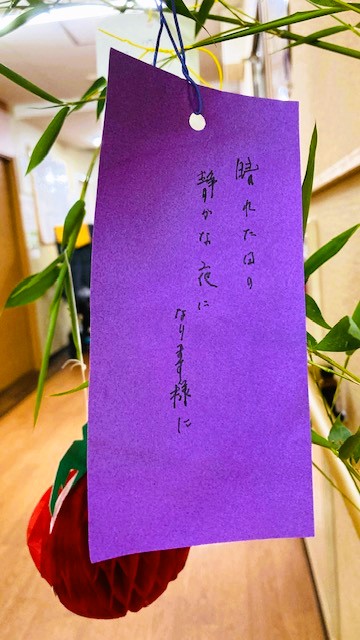 晴れた日の
静かな夜に
なります様に